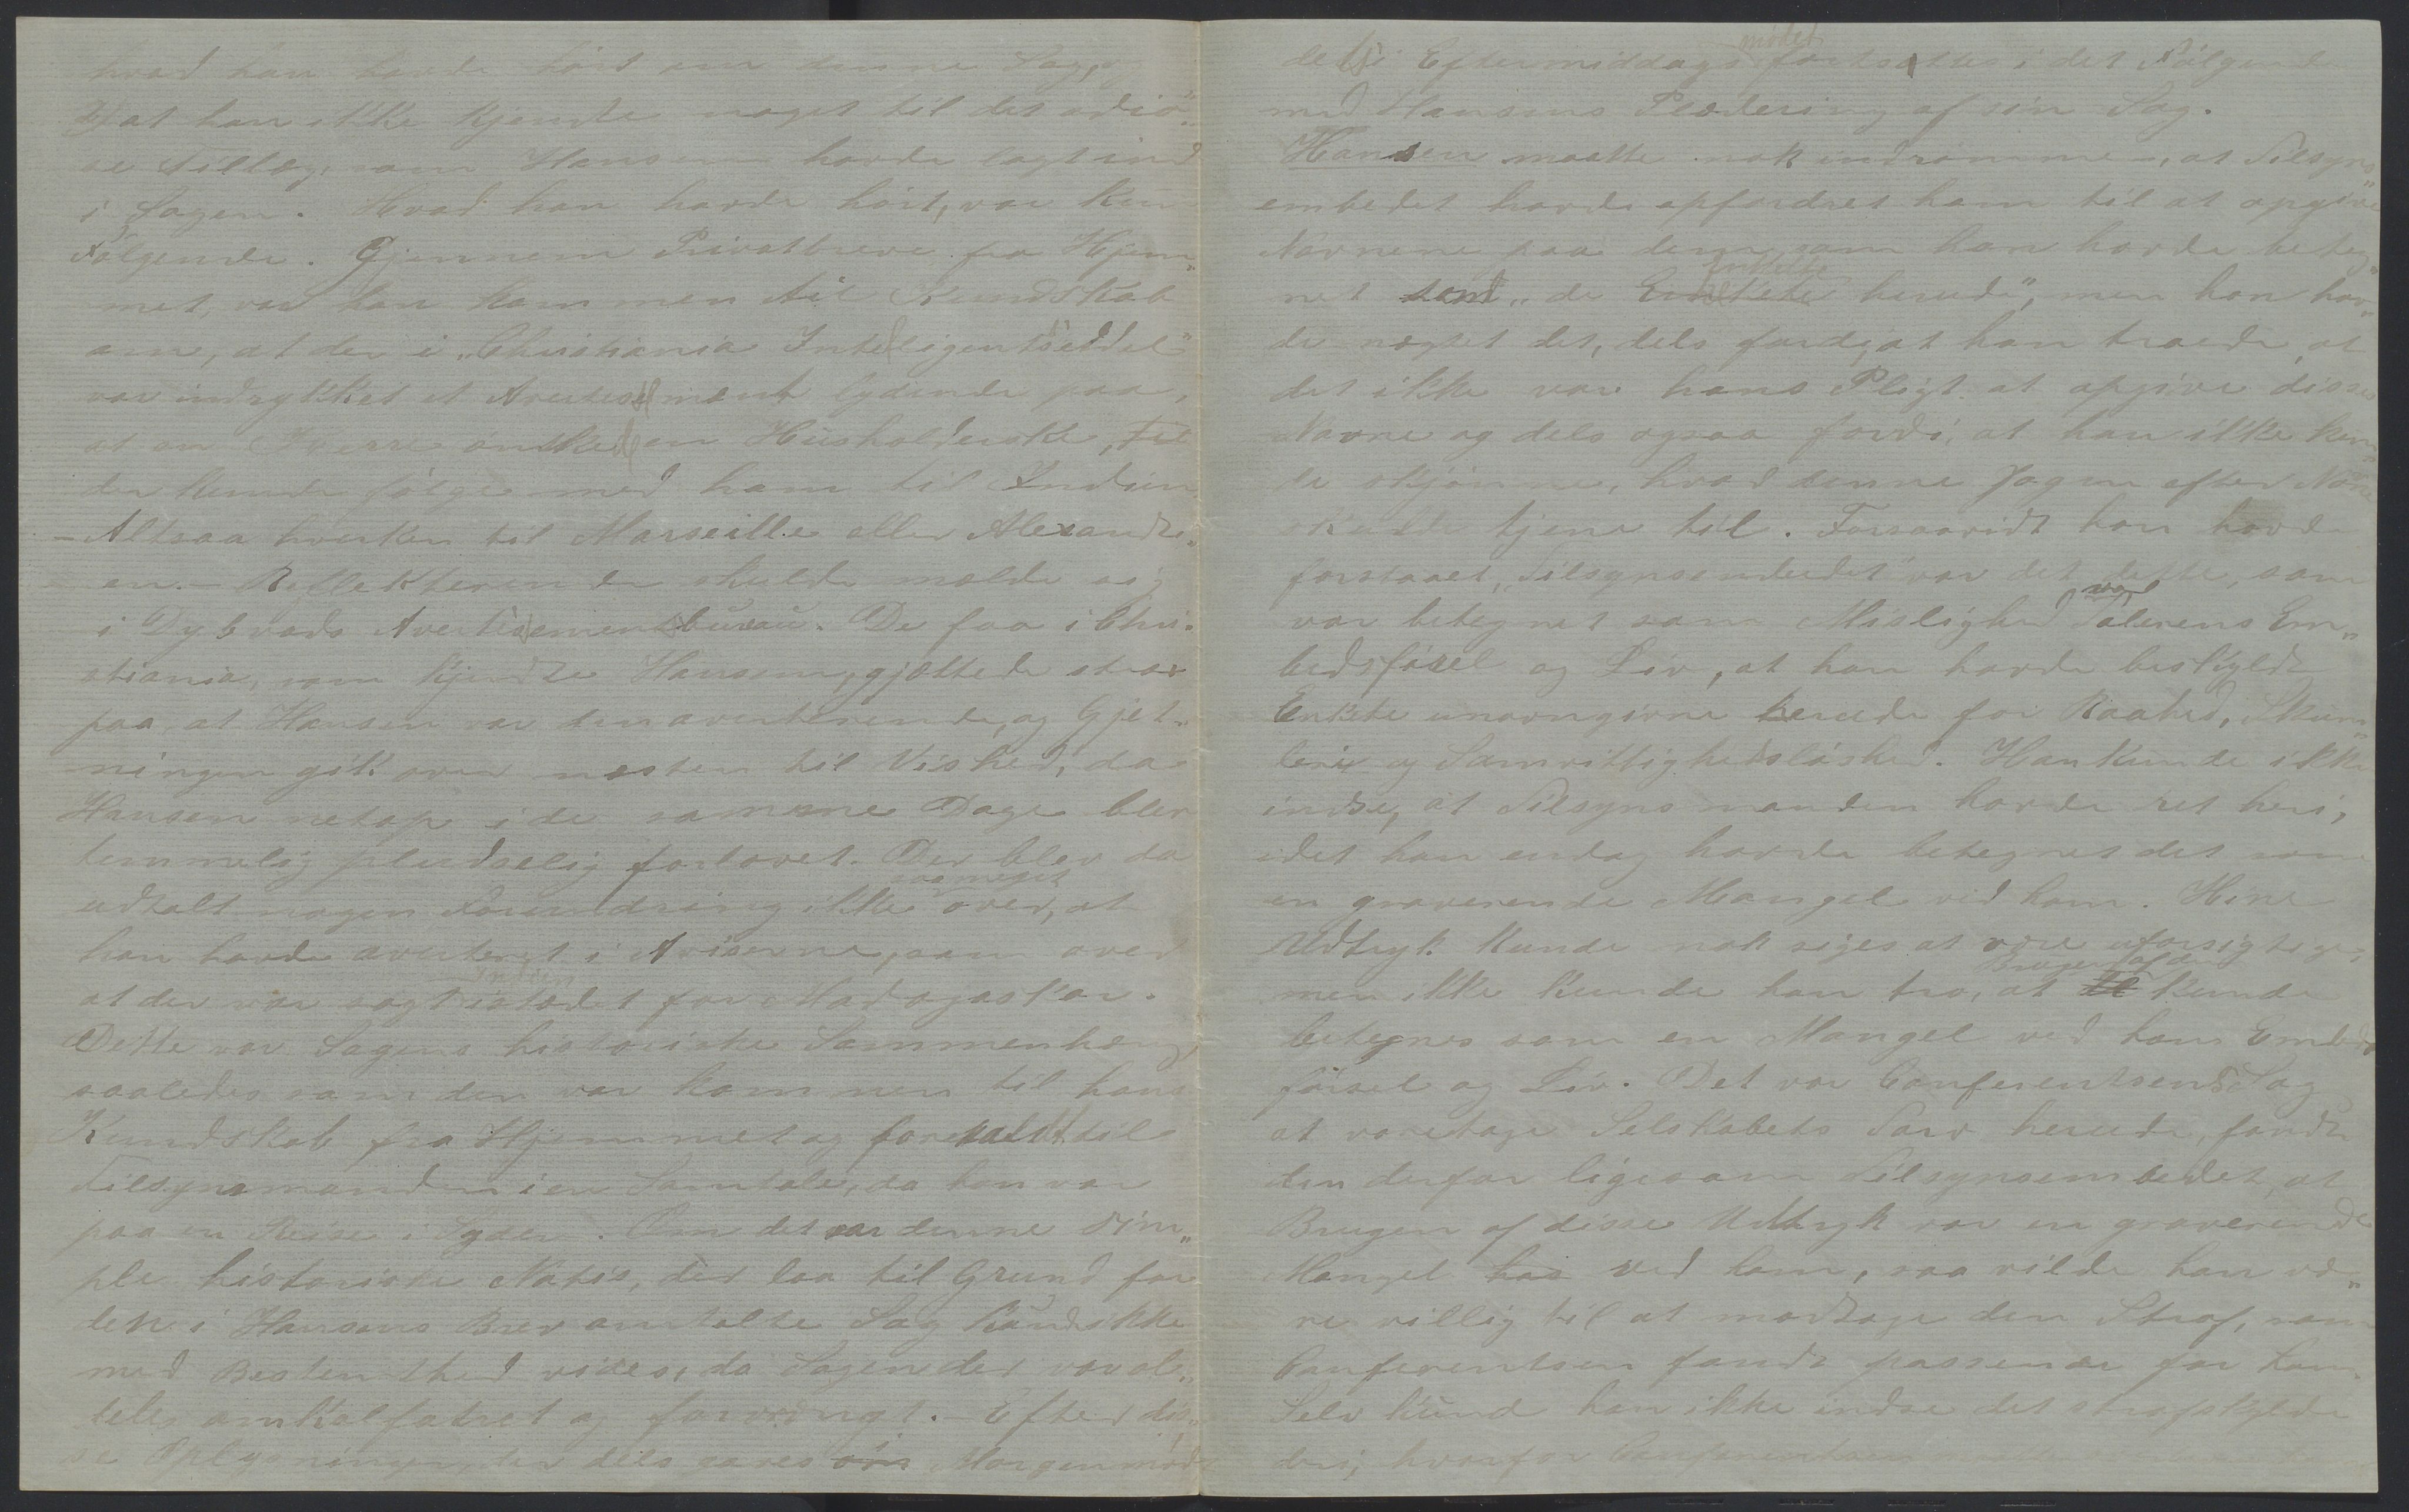 hvad han havde hört om denne Sag, og
at han ikke kjendte noget til det odiö„
se Tillæg, som Hansen havde lagt ind
i Sagen. Hvad han havde hört, var kun
Fölgende. Gjennem Privatbreve fra Hjem„
met, var han kommen til Kundskab
om, at der i „Christiania Intelligentseddel"
var indrykket et Avertissement lydende paa,
at en Herre önsked en Husholderske,
der kunde fölge med ham til Indien
– Altsaa hverken til Marseille eller Alexandri„
en. – Reflekterende skulde melde sig
i Dybvads Avertissementsbureau. De faa i Chri„
stiania, som kjendte Hansen, gjettede strax
paa, at Hansen var den averterende, og Gjet„
ningen gik over næsten til Vished, da
Hansen netop i de samme Dage blev
temmelig pludselig forlovet. Der blev da
udtalt nogen Forundring ikke saameget over, at
han havde averteret i Aviserne, som over
at der var sagt Indien istedet for Madagaskar.
Dette var Sagens historiske Sammenhæng,
saaledes som den var kommen til hans
Kundskab fra Hjemmet og fortaldt til
Tilsynsmanden i en Samtale, da han var
paa en Reise i Syden. Om det var denne sim„
ple historiske Notis, der laa til Grund for
den i Hansens Brev omtalte Sag kunde ikke
med Bestemthed vides, da Sagen der var al„
deles omkalfatret og forvrængt. – Efter dis„
se Oplysninger, der dels gaves Morgenmöde
dels i Eftermiddagsmödet fortsattes i det Fölgende
med Hansens Plædering af sin Sag.
Hansen maatte nok indrömme –, at Tilsyns„
embedet havde opfordret ham til at opgive
Navnene paa dem, som han havde beteg„
net som „de Enkelte herude", men han hav„
de nægtet det, dels fordi, at han troede, at
det ikke var hans Pligt at opgive disse
Navne og dels ogsaa fordi, at han ikke kun„
de skjönne, hvad denne Jagen efter Navne
skulde tjene til. Forsaavidt han havde
forstaaet Tilsynsembedet var det dette, som
var betegnet som Mislighed ved Talerens Em„
bedsförsel og Liv, at han havde beskyldt
Enkelte unavngivne herude for Raahed, Skum„
leri og Samvittighedslöshed. Han kunde ikke
indse, at Tilsynsmanden havde ret heri,
idet han endog havde betegnet det som
en graverende Mangel ved ham. Hine
Udtryk kunde nok siges at være uforsigtige,
men ikke kunde han tro, at Brugen af dem kunde
betegnes som en Mangel ved hans Embeds„
försel og Liv. Det var Conferentsens Sag
at varetage Selskabets Tarv herude, fandt
den derfor ligesom Tilsynsembedet, at
Brugen af disse Udtryk var en graverende
Mangel hos ved ham, saa vilde han væ„
re villig til at modtage den Straf, som
Conferentsen fandt passende for ham.
Selv kunde han ikke indse det strafskyldige
deri, hvorfor Conferentsen